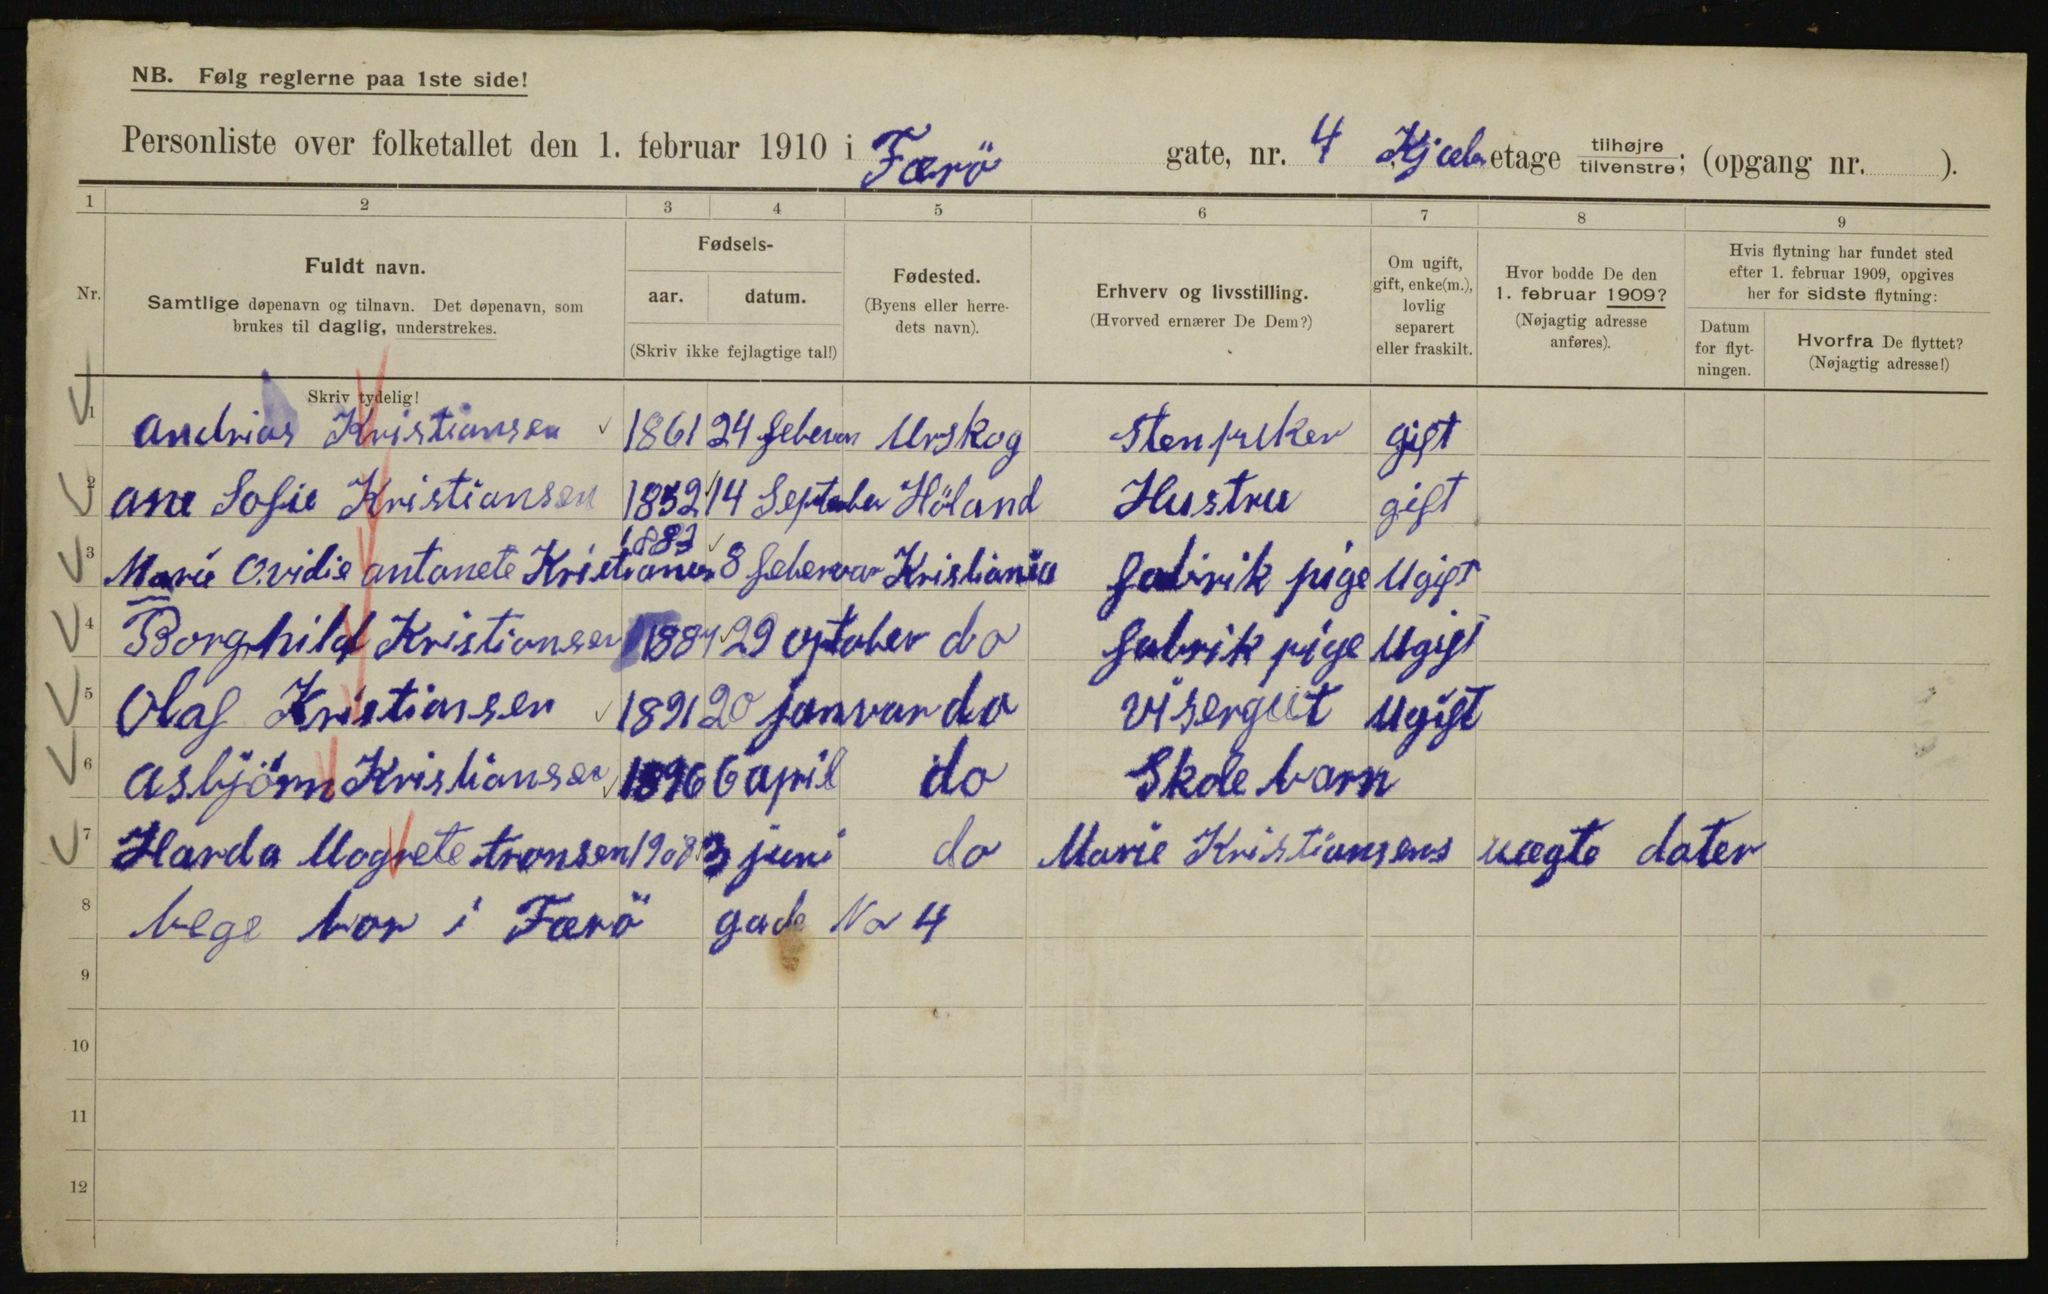 NB. Følg reglerne paa 1ste side!
Personliste over folketallet den 1. februar 1910 i Færö gate, nr. 4 Kjæler etage tilhøjre/tilvenstre; (opgang nr. ).
1 2 3 4 5 6 7 8 9
Nr.
Fuldt navn.
Samtlige døpenavn og tilnavn. Det døpenavn, som
brukes til daglig, understrekes.
Skriv tydelig!
Fødsels-
aar. datum.
(Skriv ikke fejlagtige tal!)
Fødested.
(Byens eller herre-
dets navn).
Erhverv og livsstilling.
(Hvorved ernærer De Dem?)
Om ugift,
gift, enke(m.),
lovlig
separert
eller fraskilt.
Hvor bodde De den
1. februar 1909?
(Nøjagtig adresse
anføres).
Hvis flytning har fundet sted
efter 1. februar 1909, opgives
her for sidste flytning:
Datum
for flyt-
ningen.
Hvorfra De flyttet?
(Nøjagtig adresse!)
1 andrias Kristiansen 1861 24 Urskog gift
2 ane Sofie Kristiansen 1852 14 September Höland Hustru gift
3 Marie Ovidie antonete 8 Kristiania fabrik pige Ugift
4 Borghild Kristiansen 29 do fabrik pige Ugift
5 Olaf Kristiansen 1891 20 januar do Visergut Ugift
6 asbjörn Kristiansen 1896 6 april do Skole barn
7 Harda Magrete tronsen 1908 3 juni do Marie Kristiansens uægte dater
8 bege bor i Færö gade No 4
9
10
11
12